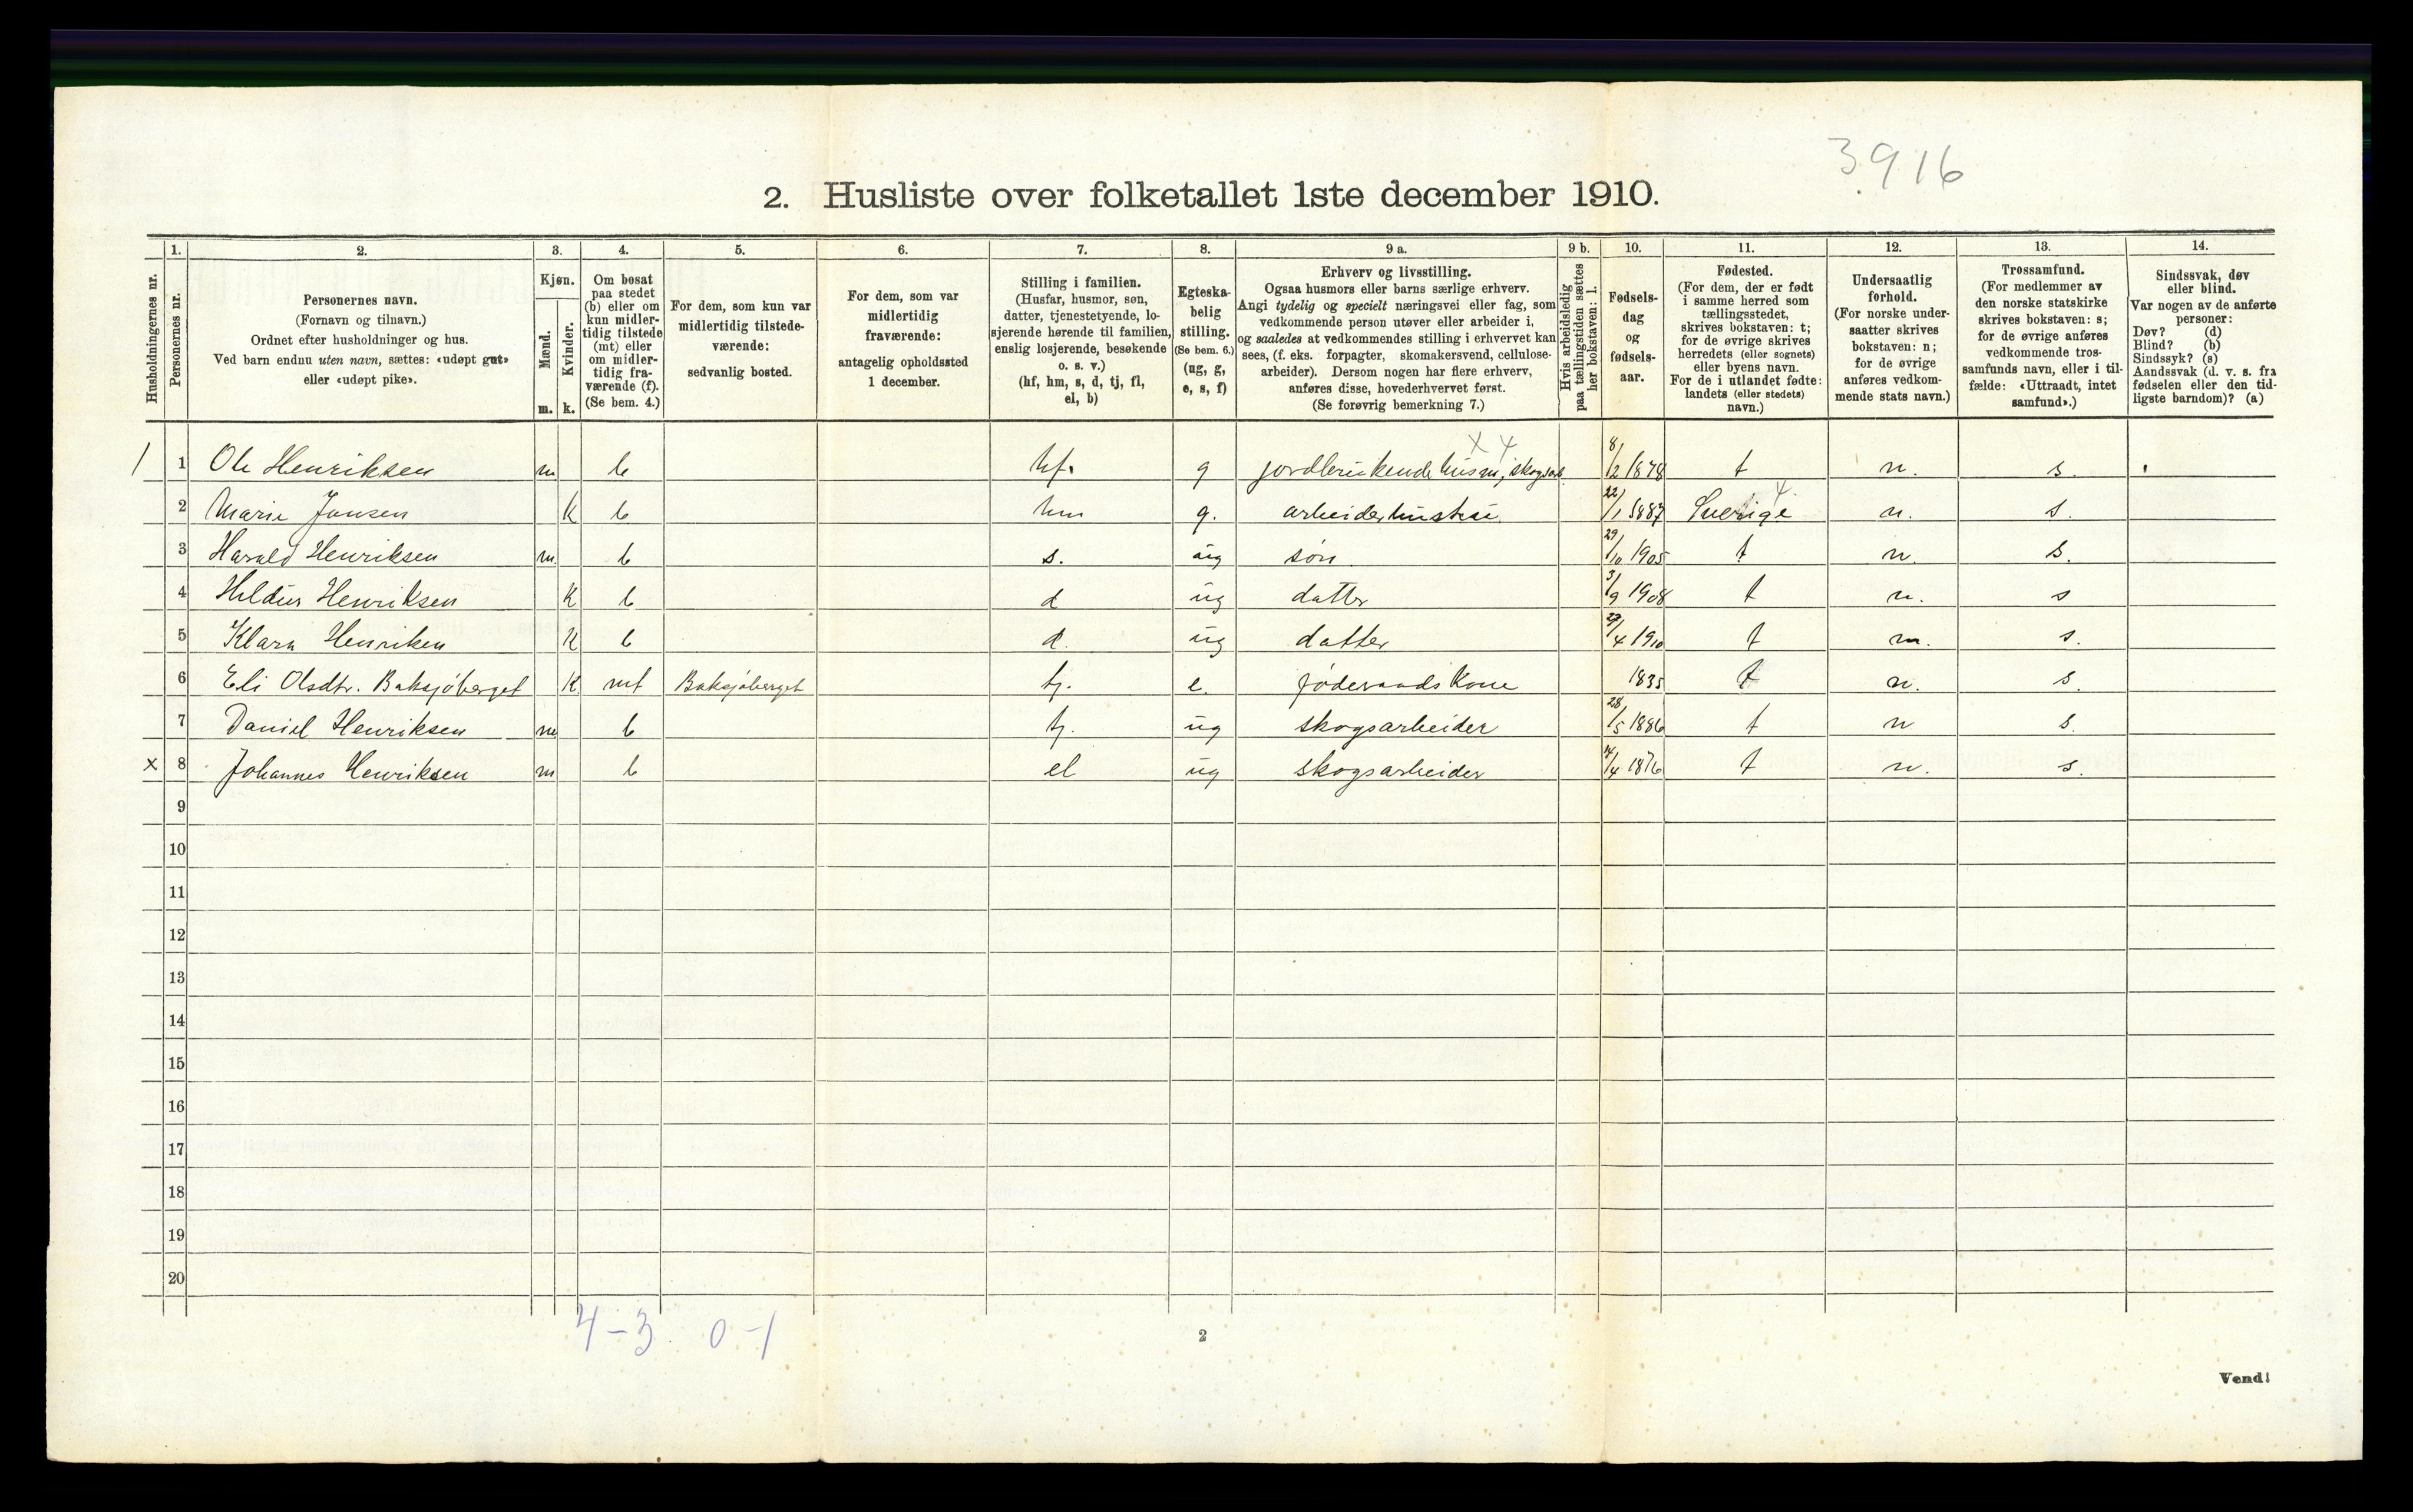 3916
2. Husliste over folketallet 1ste december 1910.
Husholdningernes nr.
1.
Personernes nr.
2.
Personernes navn.
(Fornavn og tilnavn.)
Ordnet efter husholdninger og hus.
Ved barn endnu uten navn, sættes: «udøpt gut»
eller «udøpt pike».
3.
Kjøn.
Mænd.
Kvinder.
m. k.
4.
Om bosat
paa stedet
(b) eller om
kun midler-
tidig tilstede
(mt) eller
om midler-
tidig fra-
værende (f).
(Se bem. 4.)
5.
For dem, som kun var
midlertidig tilstede-
værende:
sedvanlig bosted.
6.
For dem, som var
midlertidig
fraværende:
antagelig opholdssted
1 december.
7.
Stilling i familien.
(Husfar, husmor, søn,
datter, tjenestetyende, lo-
sjerende hørende til familien,
enslig losjerende, besøkende
o. s. v.)
(hf, hm, s, d, tj, fl,
el, b)
8.
Egteska-
belig
stilling.
(Se bem. 6.)
(ug, g,
e, s, f)
9 a.
Erhverv og livsstilling.
Ogsaa husmors eller barns særlige erhverv.
Angi tydelig og specielt næringsvei eller fag, som
vedkommende person utøver eller arbeider i,
og saaledes at vedkommendes stilling i erhvervet kan
sees, (f. eks. forpagter, skomakersvend, cellulose-
arbeider). Dersom nogen har flere erhverv,
anføres disse, hovederhvervet først.
(Se forøvrig bemerkning 7.)
9 b.
Hvis arbeidsledig
paa tællingstiden sættes
her bokstaven: l.
10.
Fødsels-
dag
og
fødsels-
aar.
11.
Fødested.
(For dem, der er født
i samme herred som
tællingsstedet,
skrives bokstaven: t;
for de øvrige skrives
herredets (eller sognets)
eller byens navn.
For de i utlandet fødte:
landets (eller stedets)
navn.)
12.
Undersaatlig
forhold.
(For norske under-
saatter skrives
bokstaven: n;
for de øvrige
anføres vedkom-
mende stats navn.)
13.
Trossamfund.
(For medlemmer av
den norske statskirke
skrives bokstaven: s;
for de øvrige anføres
vedkommende tros-
samfunds navn, eller i til-
fælde: «Uttraadt, intet
samfund».)
14.
Sindssvak, døv
eller blind.
Var nogen av de anførte
personer:
Døv? (d)
Blind? (b)
Sindssyk? (s)
Aandssvak (d. v. s. fra
fødselen eller den tid-
ligste barndom)? (a)
x 4
1 1 Ole Henriksen m b hf. g jordbrukende husm, skogsarb. 8/2 1878 t n. s.
4
2 Marie Jonsen k b hm g. arbeiderhustru 22/1 1887 Sverige n. s.
3 Harald Henriksen m b s. ug søn 29/10 1905 t n. s.
4 Hildur Henriksen k b d ug datter 3/9 1908 t n. s
5 Klara Henriken k b d. ug datter 29/4 1910 t n. s.
6 Eli Olsdtr. Baksjøberget k mt Baksjøberget tj. e. føderaads kone 1835 t n. s.
7 Daniel Henriksen m b tj. ug skogsarbeider 28/5 1886 t n s.
x 8 Johannes Henriksen m b el ug skogsarbeider 14/4 1876 t n. s.
9
10
11
12
13
14
15
16
17
18
19
20
4-3 0-1
2
Vend!